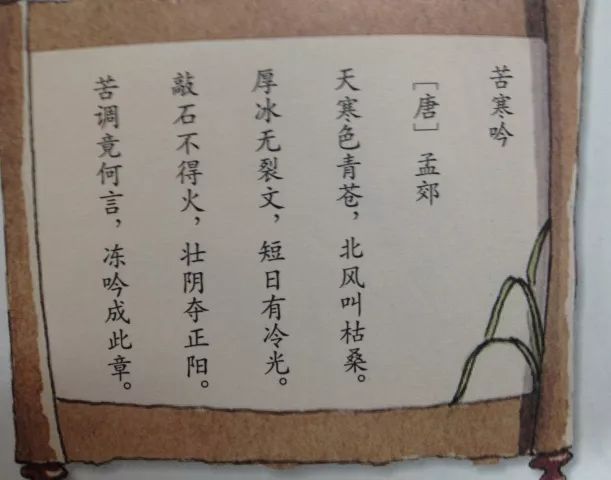 苦寒吟
［唐］孟郊
天寒色青苍，北风叫枯桑。
厚冰无裂文，短日有冷光。
敲石不得火，壮阴夺正阳。
苦调竟何言，冻吟成此章。